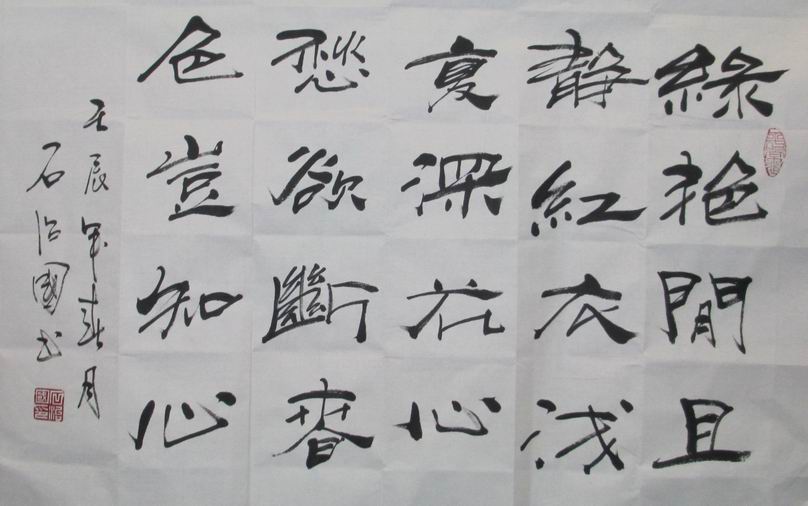 綠艳閒且
靜紅衣浅
复深花心
愁欲斷春
色豈知心
壬辰年春月
石治國书